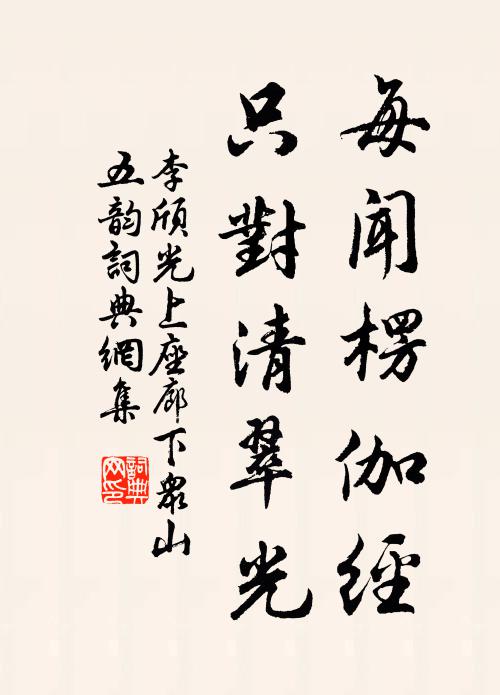 每聞楞伽經
只對清翠光
李頎光上座廊下眾山
五韵詞典網集
詞典
网印